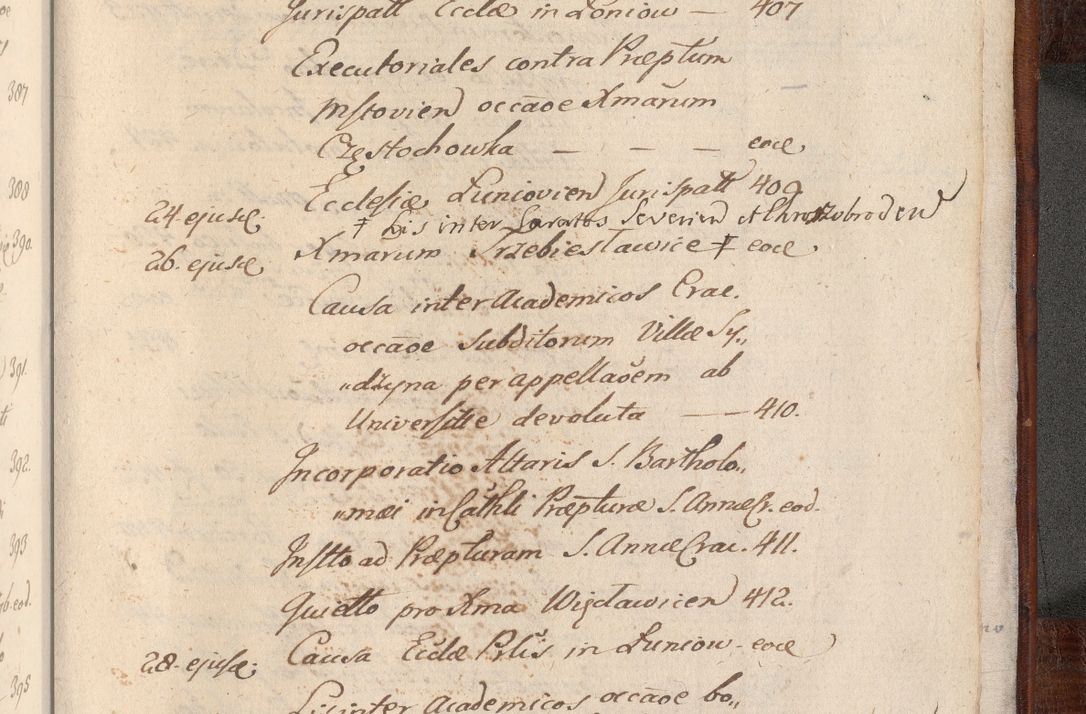 Jurispatt Ecclæ in Łoniow — 407
Executoriales contra Præptum
Mstovien occãoe Xmarum
Częstochowka — — — eod.
Ecclesiæ Łuniovien Jurispatt 409
24. ejusd. ‡ Lis inter Severien et Chrzobroden
26. ejusd. Xmarum Trzebiesławice ‡ eod.
Causa inter Academicos Crac.
occãoe subditorum Villæ Sy„
„dżyna per appellaõem ab
Universtte devoluta — 410.
Incorporatio Altaris S. Bartholo„
„mæi in Cathli Præpturæ S. Annæ Cr. eod.
Instto ad Præpturam S. Annæ Crac. 411.
Quietto pro Xma Wisławicen 412.
28. ejusd. Causa Ecclæ Pblis in Łuniow. eod
Lis inter Academicos occãoe bo„
387
388
390
391.
392.
393
eod.
395